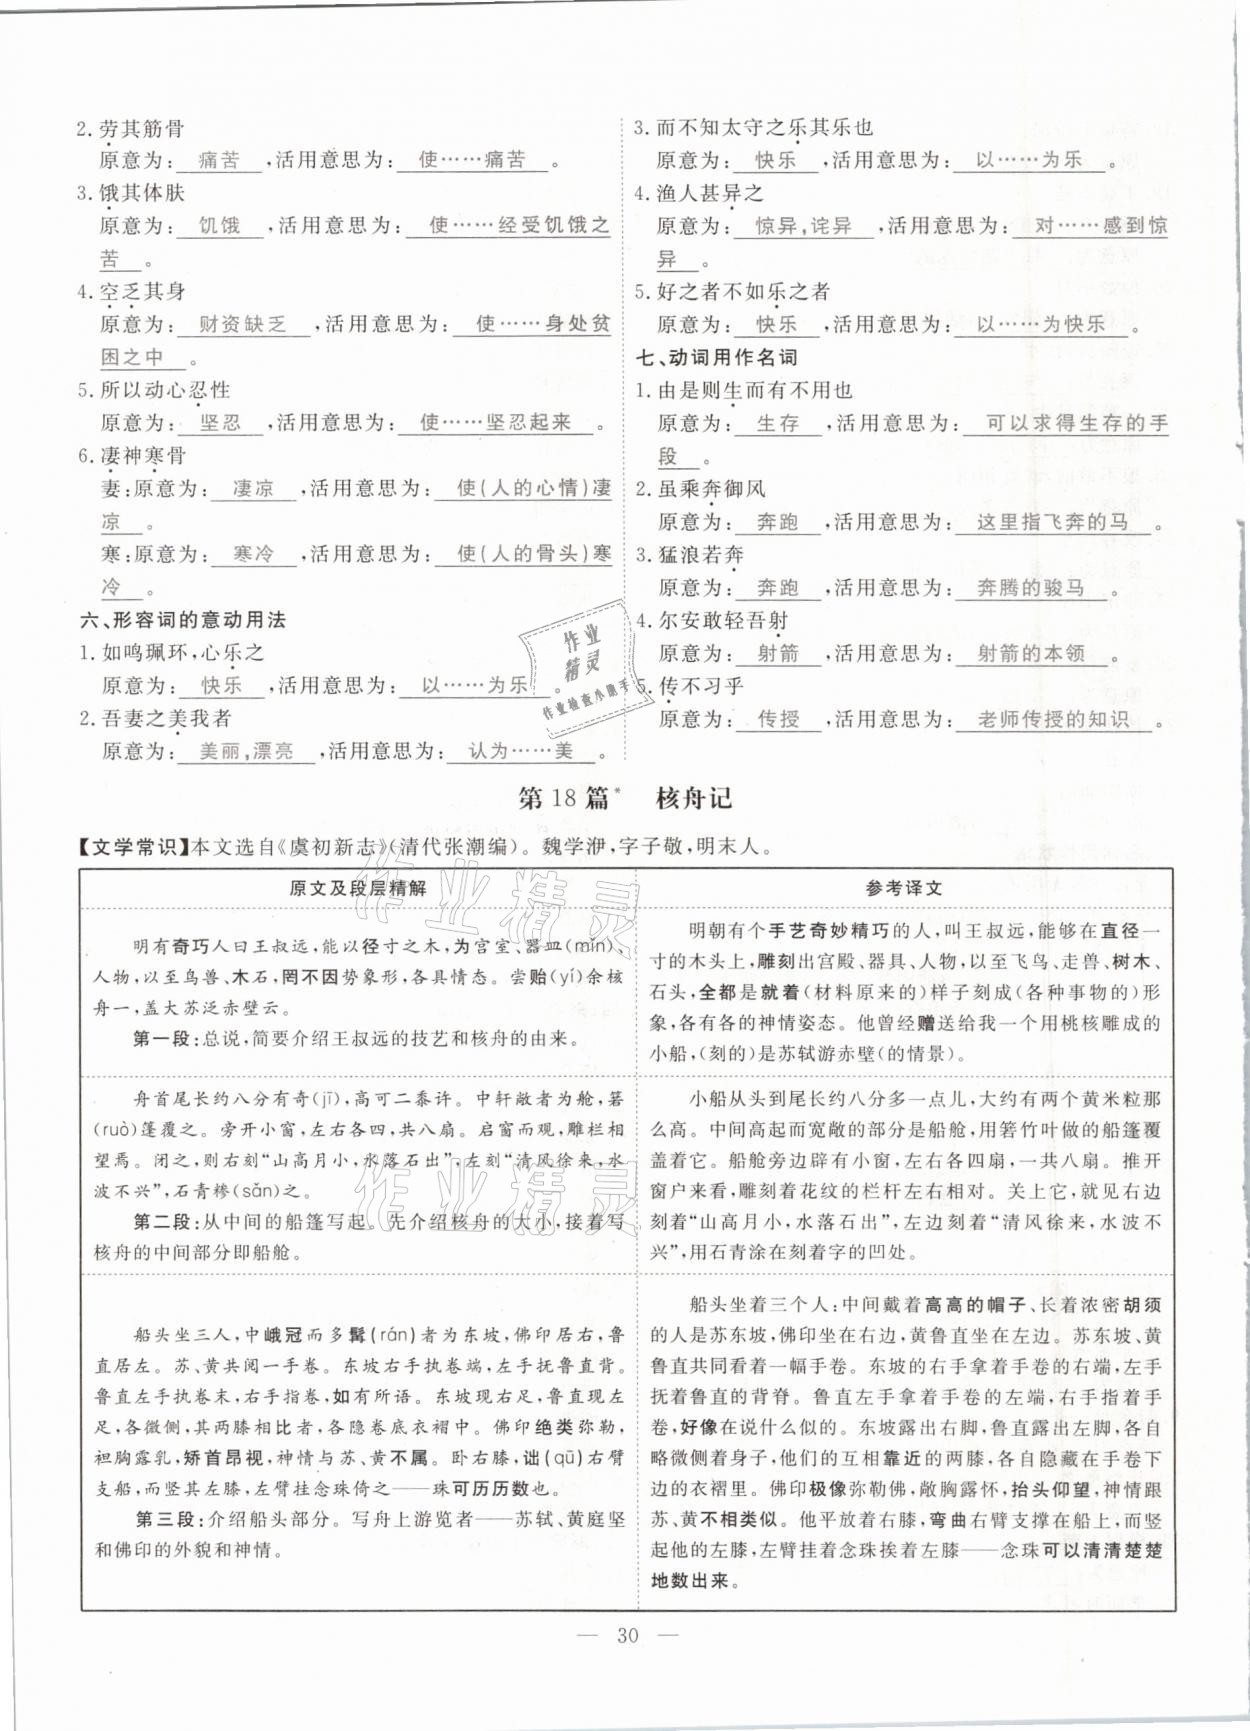 2.劳其筋骨
原意为:痛苦,活用意思为:使……痛苦。
3.饿其体肤
原意为:饥饿,活用意思为:使……经受饥饿之
苦。
4.空乏其身
原意为:财资缺乏,活用意思为:使……身处贫
困之中。
5.所以动心忍性
原意为:坚忍,活用意思为:使……坚忍起来。
6.凄神寒骨
妻:原意为:凄凉,活用意思为:使(人的心情)凄
凉。
寒:原意为:寒冷,活用意思为:使(人的骨头)寒
冷。
六、形容词的意动用法
1.如鸣珮环,心乐之
原意为:快乐,活用意思为:以……为乐。
2.吾妻之美我者
原意为:美丽,漂亮,活用意思为:认为……美。
3.而不知太守之乐其乐也
原意为:快乐,活用意思为:以……为乐。
4.渔人甚异之
原意为:惊异,诧异,活用意思为:对……感到惊
异。
5.好之者不如乐之者
原意为:快乐,活用意思为:以……为快乐。
七、动词用作名词
1.由是则生而有不用也
原意为:生存,活用意思为:可以求得生存的手
段。
2.虽乘奔御风
原意为:奔跑,活用意思为:这里指飞奔的马。
3.猛浪若奔
原意为:奔跑,活用意思为:奔腾的骏马。
4.尔安敢轻吾射
原意为:射箭,活用意思为:射箭的本领。
5.传不习乎
原意为:传授,活用意思为:老师传授的知识。
作业
精灵
作业检查小助手
第18篇* 核舟记
【文学常识】本文选自《虞初新志》(清代张潮编)。魏学洢,字子敬,明末人。
原文及段层精解
参考译文
明有奇巧人曰王叔远,能以径寸之木,为宫室、器皿(mǐn)、
人物,以至鸟兽、木石,罔不因势象形,各具情态。尝贻(yí)余核
舟一,盖大苏泛赤壁云。
第一段:总说,简要介绍王叔远的技艺和核舟的由来。
明朝有个手艺奇妙精巧的人,叫王叔远,能够在直径一
寸的木头上,雕刻出宫殿、器具、人物,以至飞鸟、走兽、树木、
石头,全都是就着(材料原来的)样子刻成(各种事物的)形
象,各有各的神情姿态。他曾经赠送给我一个用桃核雕成的
小船,(刻的)是苏轼游赤壁(的情景)。
舟首尾长约八分有奇(jī),高可二黍许。中轩敞者为舱,箬
(ruò)篷覆之。旁开小窗,左右各四,共八扇。启窗而观,雕栏相
望焉。闭之,则右刻“山高月小,水落石出”,左刻“清风徐来,水
波不兴”,石青糁(sǎn)之。
第二段:从中间的船篷写起。先介绍核舟的大小,接着写
核舟的中间部分即船舱。
小船从头到尾长约八分多一点儿,大约有两个黄米粒那
么高。中间高起而宽敞的部分是船舱,用箬竹叶做的船篷覆
盖着它。船舱旁边辟有小窗,左右各四扇,一共八扇。推开
窗户来看,雕刻着花纹的栏杆左右相对。关上它,就见右边
刻着“山高月小,水落石出”,左边刻着“清风徐来,水波不
兴”,用石青涂在刻着字的凹处。
船头坐三人,中峨冠而多髯(rán)者为东坡,佛印居右,鲁
直居左。苏、黄共阅一手卷。东坡右手执卷端,左手抚鲁直背。
鲁直左手执卷末,右手指卷,如有所语。东坡现右足,鲁直现左
足,各微侧,其两膝相比者,各隐卷底衣褶中。佛印绝类弥勒,
袒胸露乳,矫首昂视,神情与苏、黄不属。卧右膝,诎(qū)右臂
支船,而竖其左膝,左臂挂念珠倚之——珠可历历数也。
第三段:介绍船头部分。写舟上游览者——苏轼、黄庭坚
和佛印的外貌和神情。
船头坐着三个人:中间戴着高高的帽子、长着浓密胡须
的人是苏东坡,佛印坐在右边,黄鲁直坐在左边。苏东坡、黄
鲁直共同看着一幅手卷。东坡的右手拿着手卷的右端,左手
抚着鲁直的背脊。鲁直左手拿着手卷的左端,右手指着手
卷,好像在说什么似的。东坡露出右脚,鲁直露出左脚,各自
略微侧着身子,他们的互相靠近的两膝,各自隐藏在手卷下
边的衣褶里。佛印极像弥勒佛,敞胸露怀,抬头仰望,神情跟
苏、黄不相类似。他平放着右膝,弯曲右臂支撑在船上,而竖
起他的左膝,左臂挂着念珠挨着左膝——念珠可以清清楚楚
地数出来。
作业精灵
作业精灵
— 30 —